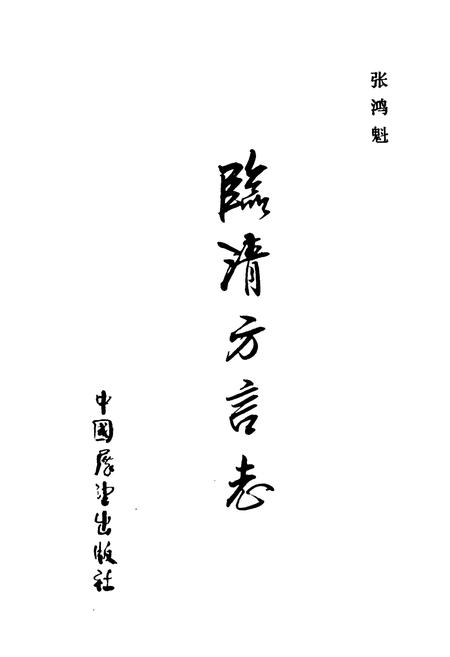 张鸿魁
臨清方言志
中國展望出版社